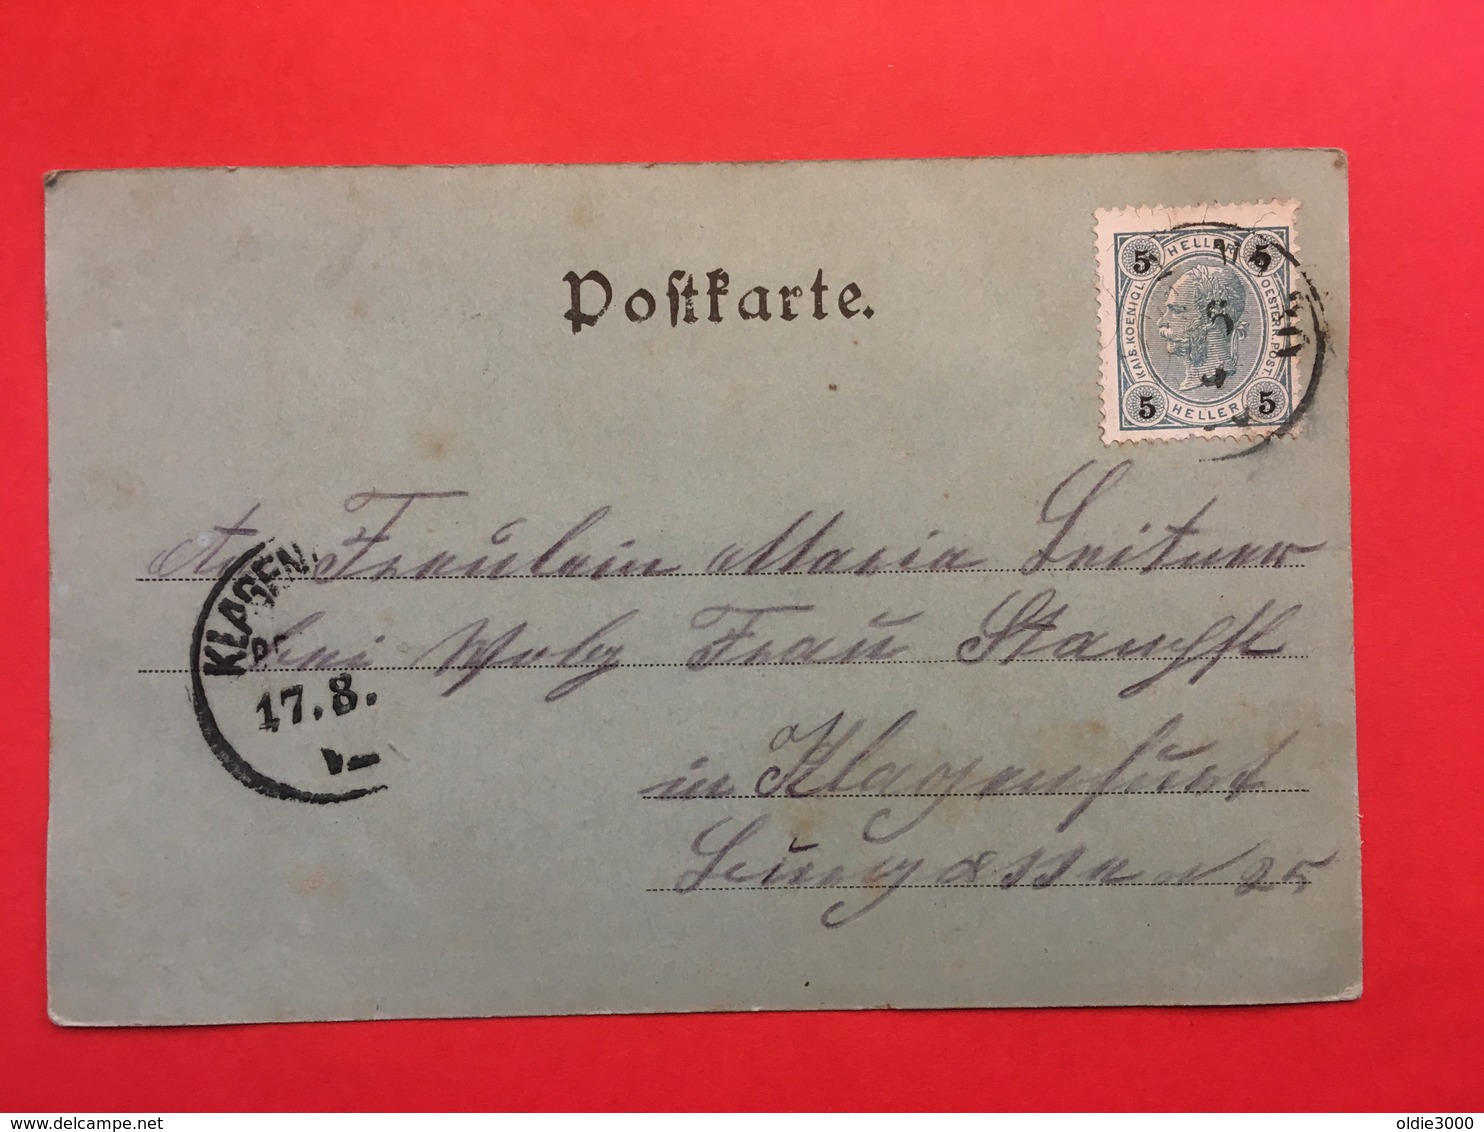 Postkarte.
5 HELLER 5
KAIS. KOENIGL. OESTERR. POST.
5 HELLER 5
An Fräulein Maria Leitner
bei Frau
in Klagenfurt
KLAGENF
17.8.
25
www.delcampe.net
oldie3000